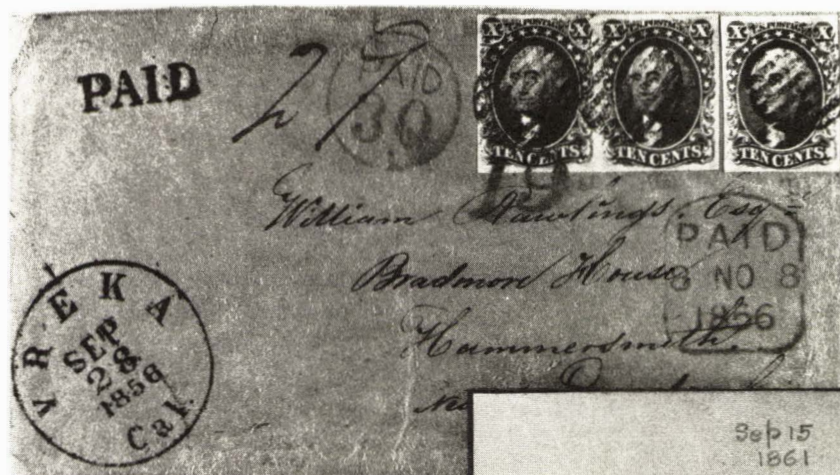 PAID
27
PAID
30
X U.S. POSTAGE X
TEN CENTS.
X U.S. POSTAGE X
TEN CENTS.
X U.S. POSTAGE X
TEN CENTS.
19
William Rawlings, Esq.
Bradmore House
Hammersmith.
PAID
8 NO 8
1856
YREKA
SEP
28
1856
Cal.
Sep 15
1861